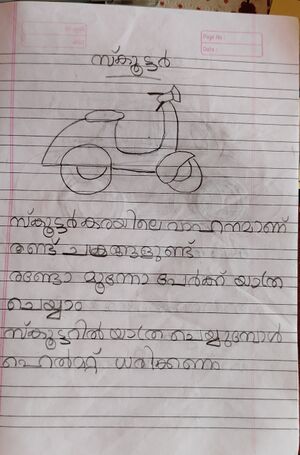 Page No :
Date :
സ്കൂട്ടർ
സ്കൂട്ടർ കരയിലെ വാഹനമാണ്
രണ്ട് ചക്രങ്ങളുണ്ട്
രണ്ടോ മൂന്നോ പേർക്ക് യാത്ര
ചെയ്യാം
സ്കൂട്ടറിൽ യാത്ര ചെയ്യുമ്പോൾ
ഹെൽമറ്റ് ധരിക്കണം